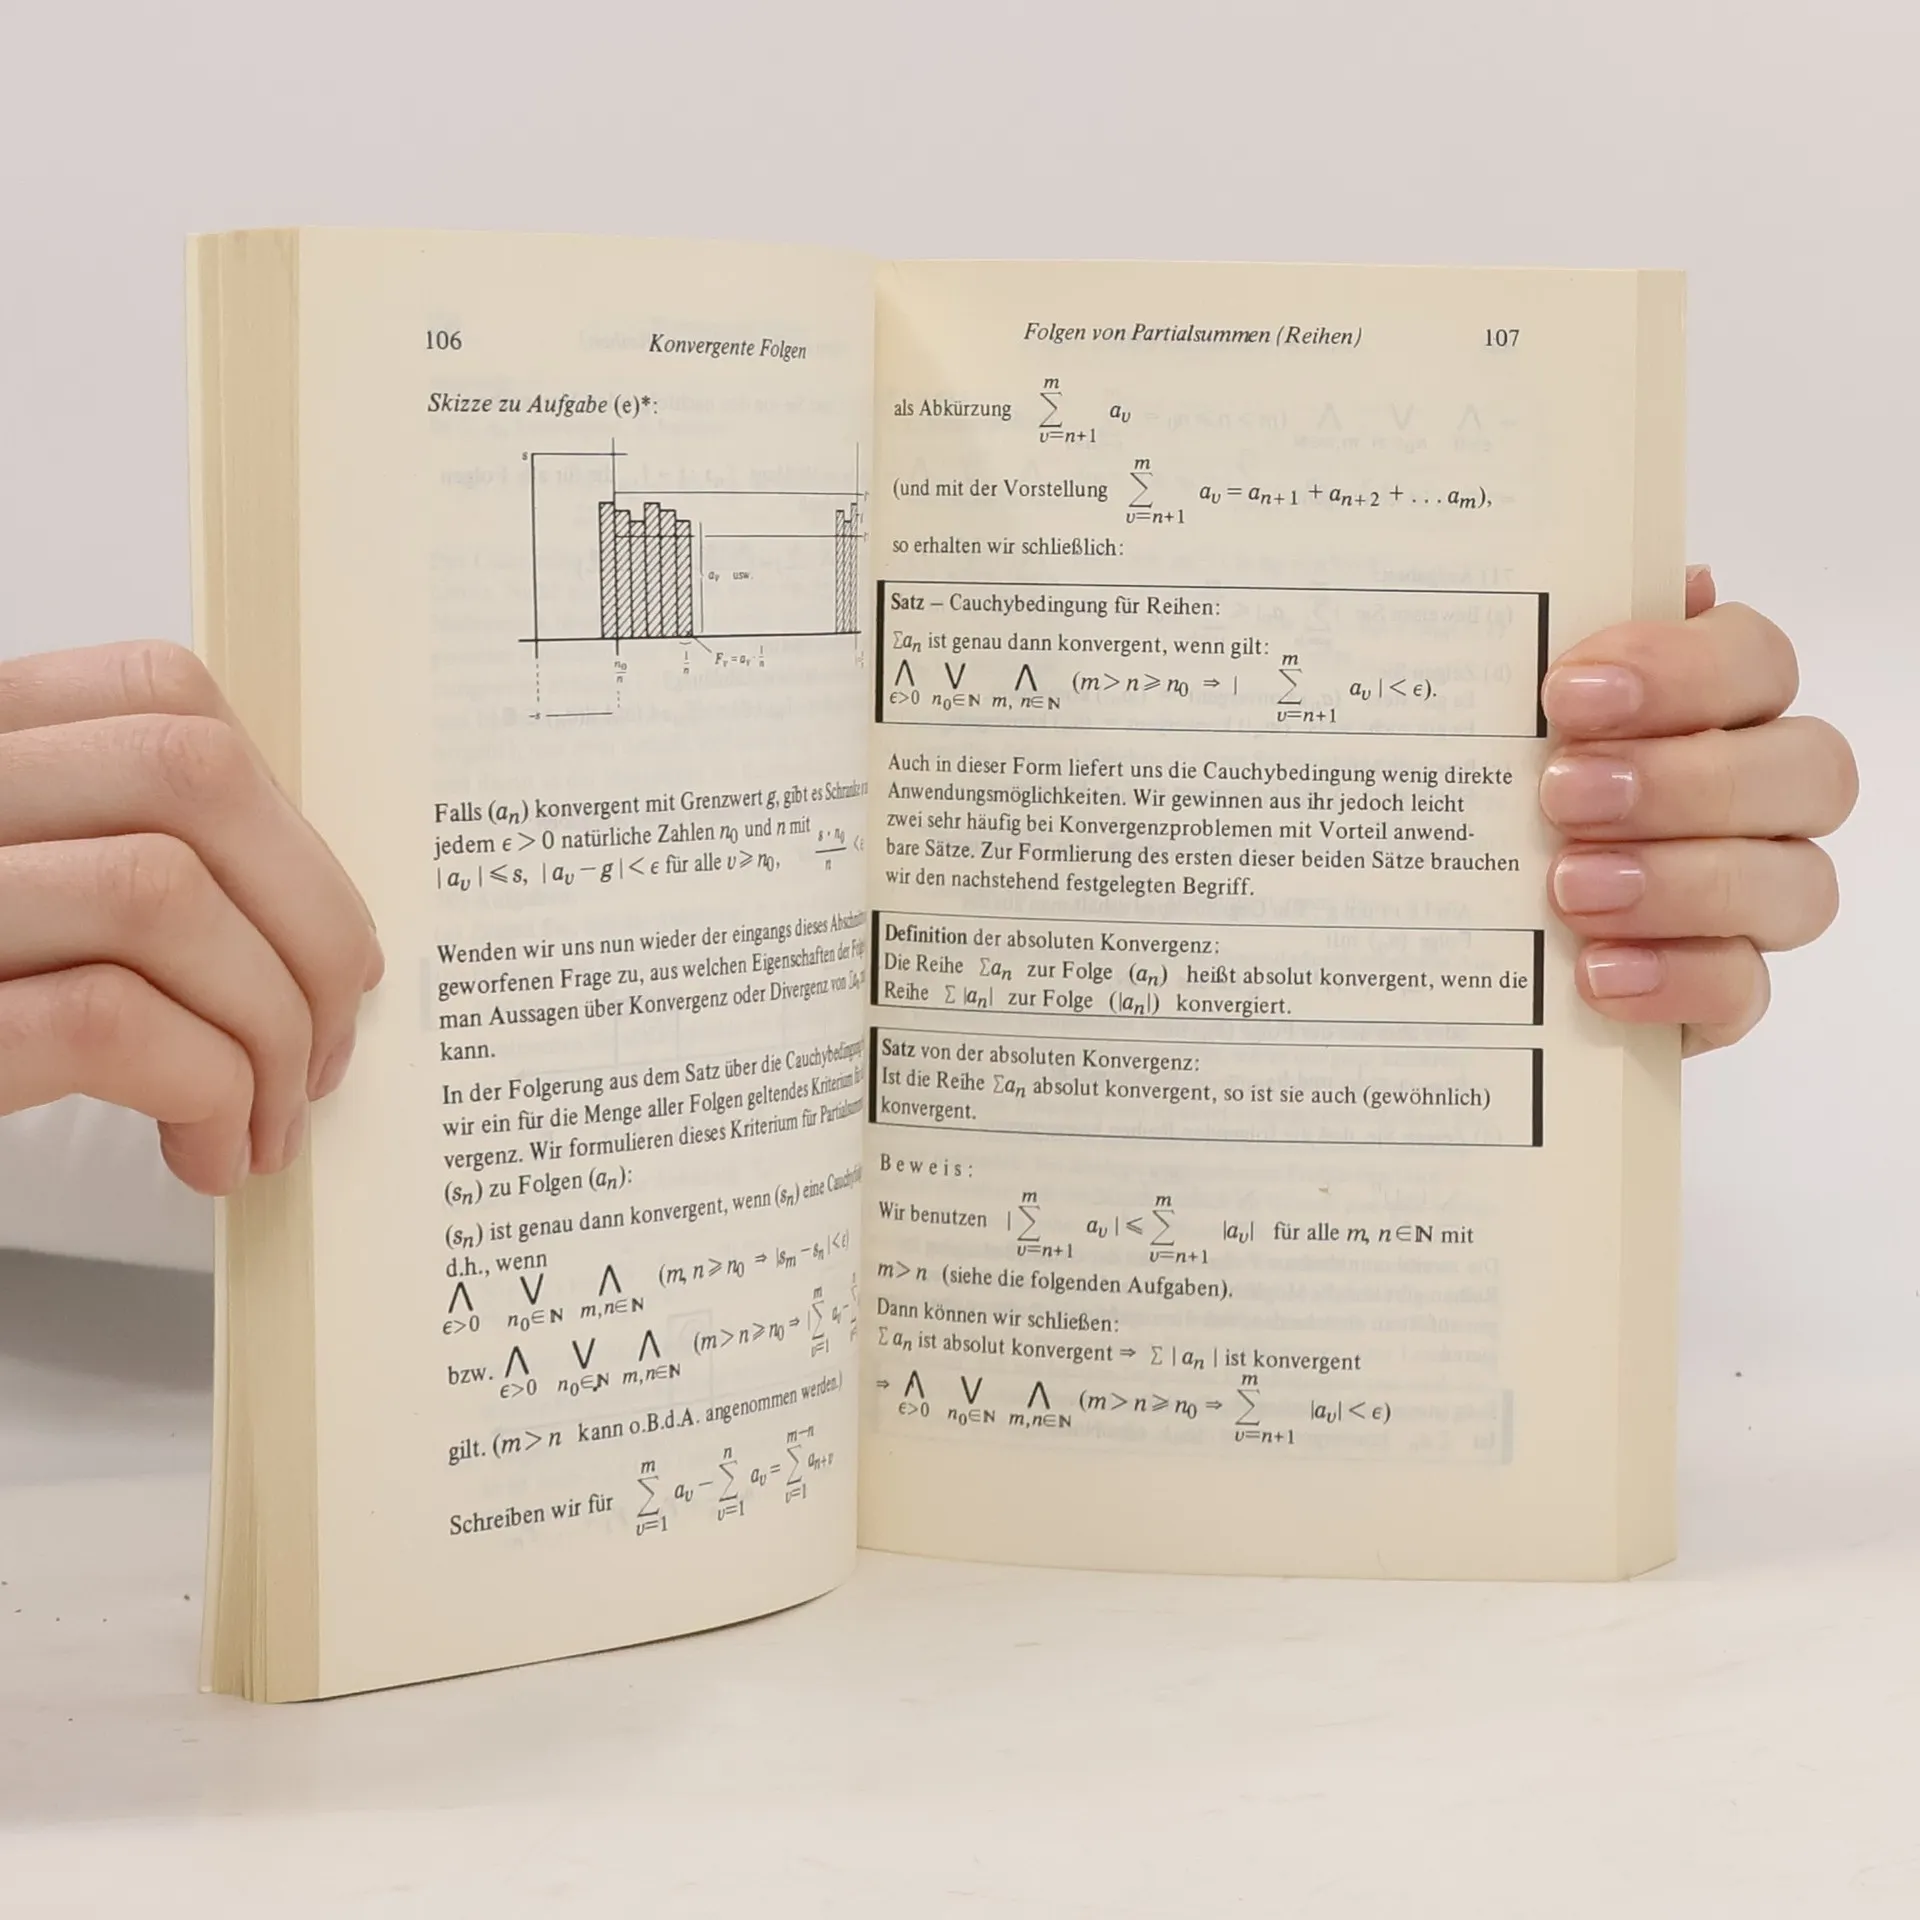 106 Konvergente Folgen
Skizze zu Aufgabe (e)*:
s
aᵥ usw.
n₀/n
1/n
Fᵥ = aᵥ · 1/n
-s
Falls (aₙ) konvergent mit Grenzwert g, gibt es Schranke
jedem ϵ > 0 natürliche Zahlen n₀ und n mit s · n₀ / n < ϵ
| aᵥ | ⩽ s, | aᵥ − g | < ϵ für alle υ ⩾ n₀,
Wenden wir uns nun wieder der eingangs dieses
geworfenen Frage zu, aus welchen Eigenschaften der
man Aussagen über Konvergenz oder Divergenz von
kann.
In der Folgerung aus dem Satz über die Cauchybedingung
wir ein für die Menge aller Folgen geltendes Kriterium
vergenz. Wir formulieren dieses Kriterium für
(sₙ) zu Folgen (aₙ):
(sₙ) ist genau dann konvergent, wenn (sₙ) eine
d.h., wenn
⋀ ϵ>0 ⋁ n₀∈ℕ ⋀ m,n∈ℕ (m, n ⩾ n₀ ⇒ |sₘ − sₙ| < ϵ)
bzw. ⋀ ϵ>0 ⋁ n₀∈ℕ ⋀ m,n∈ℕ (m > n ⩾ n₀ ⇒ | m ∑ υ=1 aᵥ −
gilt. (m > n kann o.B.d.A. angenommen werden.)
Schreiben wir für m ∑ υ=1 aᵥ − n ∑ υ=1 aᵥ = m−n ∑ υ=1 aₙ₊ᵥ
Folgen von Partialsummen (Reihen) 107
als Abkürzung m ∑ υ=n+1 aᵥ
(und mit der Vorstellung m ∑ υ=n+1 aᵥ = aₙ₊₁ + aₙ₊₂ + . . . aₘ),
so erhalten wir schließlich:
Satz – Cauchybedingung für Reihen:
Σaₙ ist genau dann konvergent, wenn gilt:
⋀ ϵ>0 ⋁ n₀∈ℕ ⋀ m, n∈ℕ (m > n ⩾ n₀ ⇒ | m ∑ υ=n+1 aᵥ | < ϵ).
Auch in dieser Form liefert uns die Cauchybedingung wenig direkte
Anwendungsmöglichkeiten. Wir gewinnen aus ihr jedoch leicht
zwei sehr häufig bei Konvergenzproblemen mit Vorteil anwend-
bare Sätze. Zur Formlierung des ersten dieser beiden Sätze brauchen
wir den nachstehend festgelegten Begriff.
Definition der absoluten Konvergenz:
Die Reihe Σaₙ zur Folge (aₙ) heißt absolut konvergent, wenn die
Reihe Σ |aₙ| zur Folge (|aₙ|) konvergiert.
Satz von der absoluten Konvergenz:
Ist die Reihe Σaₙ absolut konvergent, so ist sie auch (gewöhnlich)
konvergent.
Beweis:
Wir benutzen | m ∑ υ=n+1 aᵥ | ⩽ m ∑ υ=n+1 |aᵥ| für alle m, n∈ℕ mit
m > n (siehe die folgenden Aufgaben).
Dann können wir schließen:
Σ aₙ ist absolut konvergent ⇒ Σ | aₙ | ist konvergent
⇒ ⋀ ϵ>0 ⋁ n₀∈ℕ ⋀ m,n∈ℕ (m > n ⩾ n₀ ⇒ m ∑ υ=n+1 |aᵥ| < ϵ)